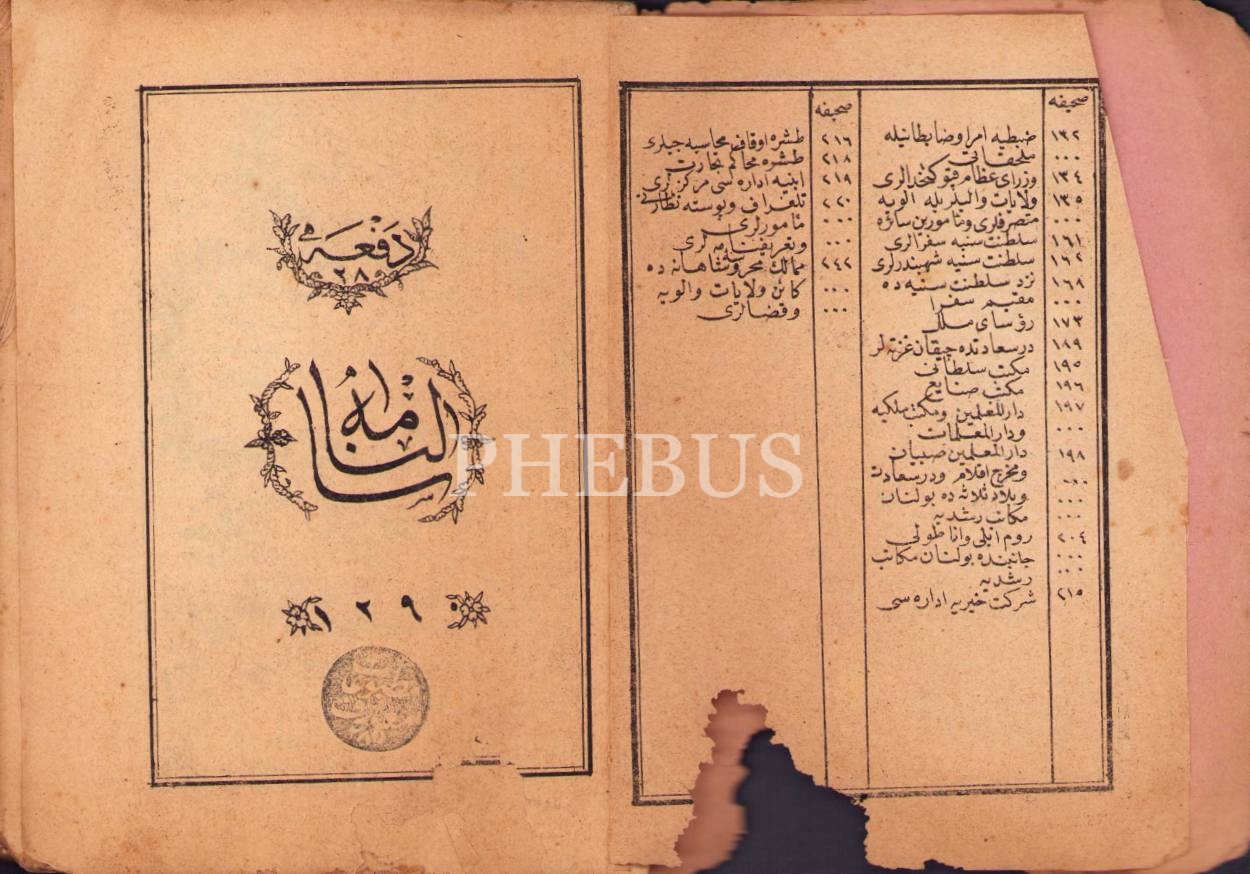 صحیفه
١٣٢ ضبطیه امرا وضابطانیله
٠٠٠ ملحقاتی
١٣٤ وزرای عظام قپو کتخدالری
١٣٥ ولایات والبلریله الویه
٠٠٠ متصرفلری ومامورین سائره
١٦١ سلطنت سنیه سفرالری
١٦٢ سلطنت سنیه شهبندرلری
١٦٨ نزد سلطنت سنیه ده
٠٠٠ مقیم سفرا
١٧٣ رؤسای ملل
١٨٩ درسعادتده چیقان غزته لر
١٩٥ مکتب سلطانی
١٩٦ مکتب صنایع
١٩٧ دارالمعلمین ومکتب ملکیه
٠٠٠ ودارالمعلمات
١٩٨ دارالمعلمین صبیان
٠٠٠ ومخرج اقلام ودرسعادت
٠٠٠ وبلاد ثلاثه ده بولنان
٠٠٠ مکاتب رشدیه
٢٠٤ روم ایلی واناطولی
٠٠٠ جانبنده بولنان مکاتب
٠٠٠ رشدیه
٢١٥ شرکت خیریه اداره سی
صحیفه
٢١٦ طشره اوقاف محاسبه جیلری
٢١٨ طشره محاکم تجارت
٢١٩ ابنیه اداره سی مرکزلری
٢٢٠ تلغراف وپوسته نظارتی
٠٠٠ مامورلری
٠٠٠ وتعریفنامه لری
٢٤٢ ممالک محروسۀ شاهانه ده
٠٠٠ کائن ولایات والویه
٠٠٠ وقضالری
دفعه
٢٨
سالنامه
١٢٩٠
PHEBUS